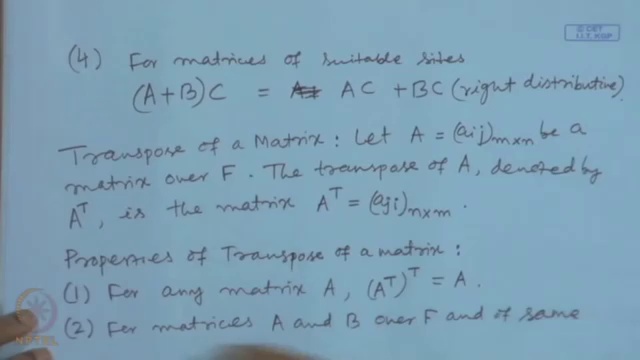 © CET
I.I.T. KGP
(4) For matrices of suitable sites
(A+B)C = AC + BC (right distributive).
Transpose of a Matrix: Let A = (aij)m×n be a
matrix over F. The transpose of A, denoted by
A^T, is the matrix A^T = (aji)n×m.
Properties of Transpose of a matrix:
(1) For any matrix A, (A^T)^T = A.
(2) For matrices A and B over F and of same
NPTEL